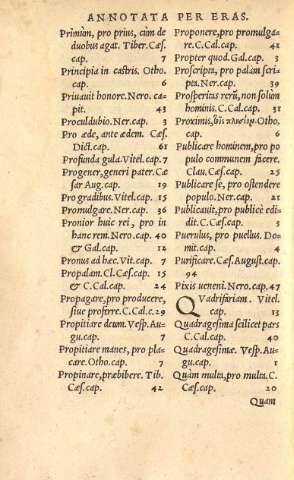 ANNOTATA PER ERAS.
Primùm, pro prius, cùm de
duobus agat. Tiber. Cæs.
cap. 7
Principia in castris. Otho.
cap. 6
Priuauit honore. Nero. ca-
pit. 43
Proculdubio. Ner. cap. 3
Pro æde, ante ædem. Cæs.
Dict. cap. 61
Profunda gula. Vitel. cap. 7
Progener, generi pater. Cæ
sar Aug. cap. 19
Pro gradibus. Vitel. cap. 15
Promulgare. Ner. cap. 36
Pronior huic rei, pro in
hanc rem. Nero. cap. 40
& Gal. cap. 12
Pronus ad hæc. Vit. cap. 7
Propalam. Cl. Cæs. cap. 15
& C. Cal. cap. 24
Propagare, pro producere,
siue proferre. C. Cal. c. 29
Propitiare deum. Vesp. Au-
gu. cap. 7
Propitiare manes, pro pla-
care. Otho. cap. 7
Propinare, præbibere. Tib.
Cæs. cap. 42
Proponere, pro promulga-
re. C. Cal. cap. 42
Propter quod. Gal. cap. 3
Proscripta, pro palàm scri-
pta. Ner. cap. 39
Prosperitas rerū, non solùm
hominis. C. Cal. cap. 31
Proximis, πλησίον. Otho.
cap. 6
Publicare hominem, pro po
pulo communem facere.
Clau. cap. 25
Publicare se, pro ostendere
populo. Ner. cap. 21
Publicauit, pro publicè edi-
dit. C. Cæs. cap. 5
Puerulus, pro puellus. Do-
mit. cap. 4
Purificare. Cæs. August. cap.
94
Pixis ueneni. Nero. cap. 47
Quadrifariam. Vitel.
cap. 13
Quadragesima scilicet pars
C. Cal. cap. 40
Quadragesimæ. Vesp. Au-
gu. cap. 1
Quàm multa, pro multa. C.
Cæs. cap. 20
Quam